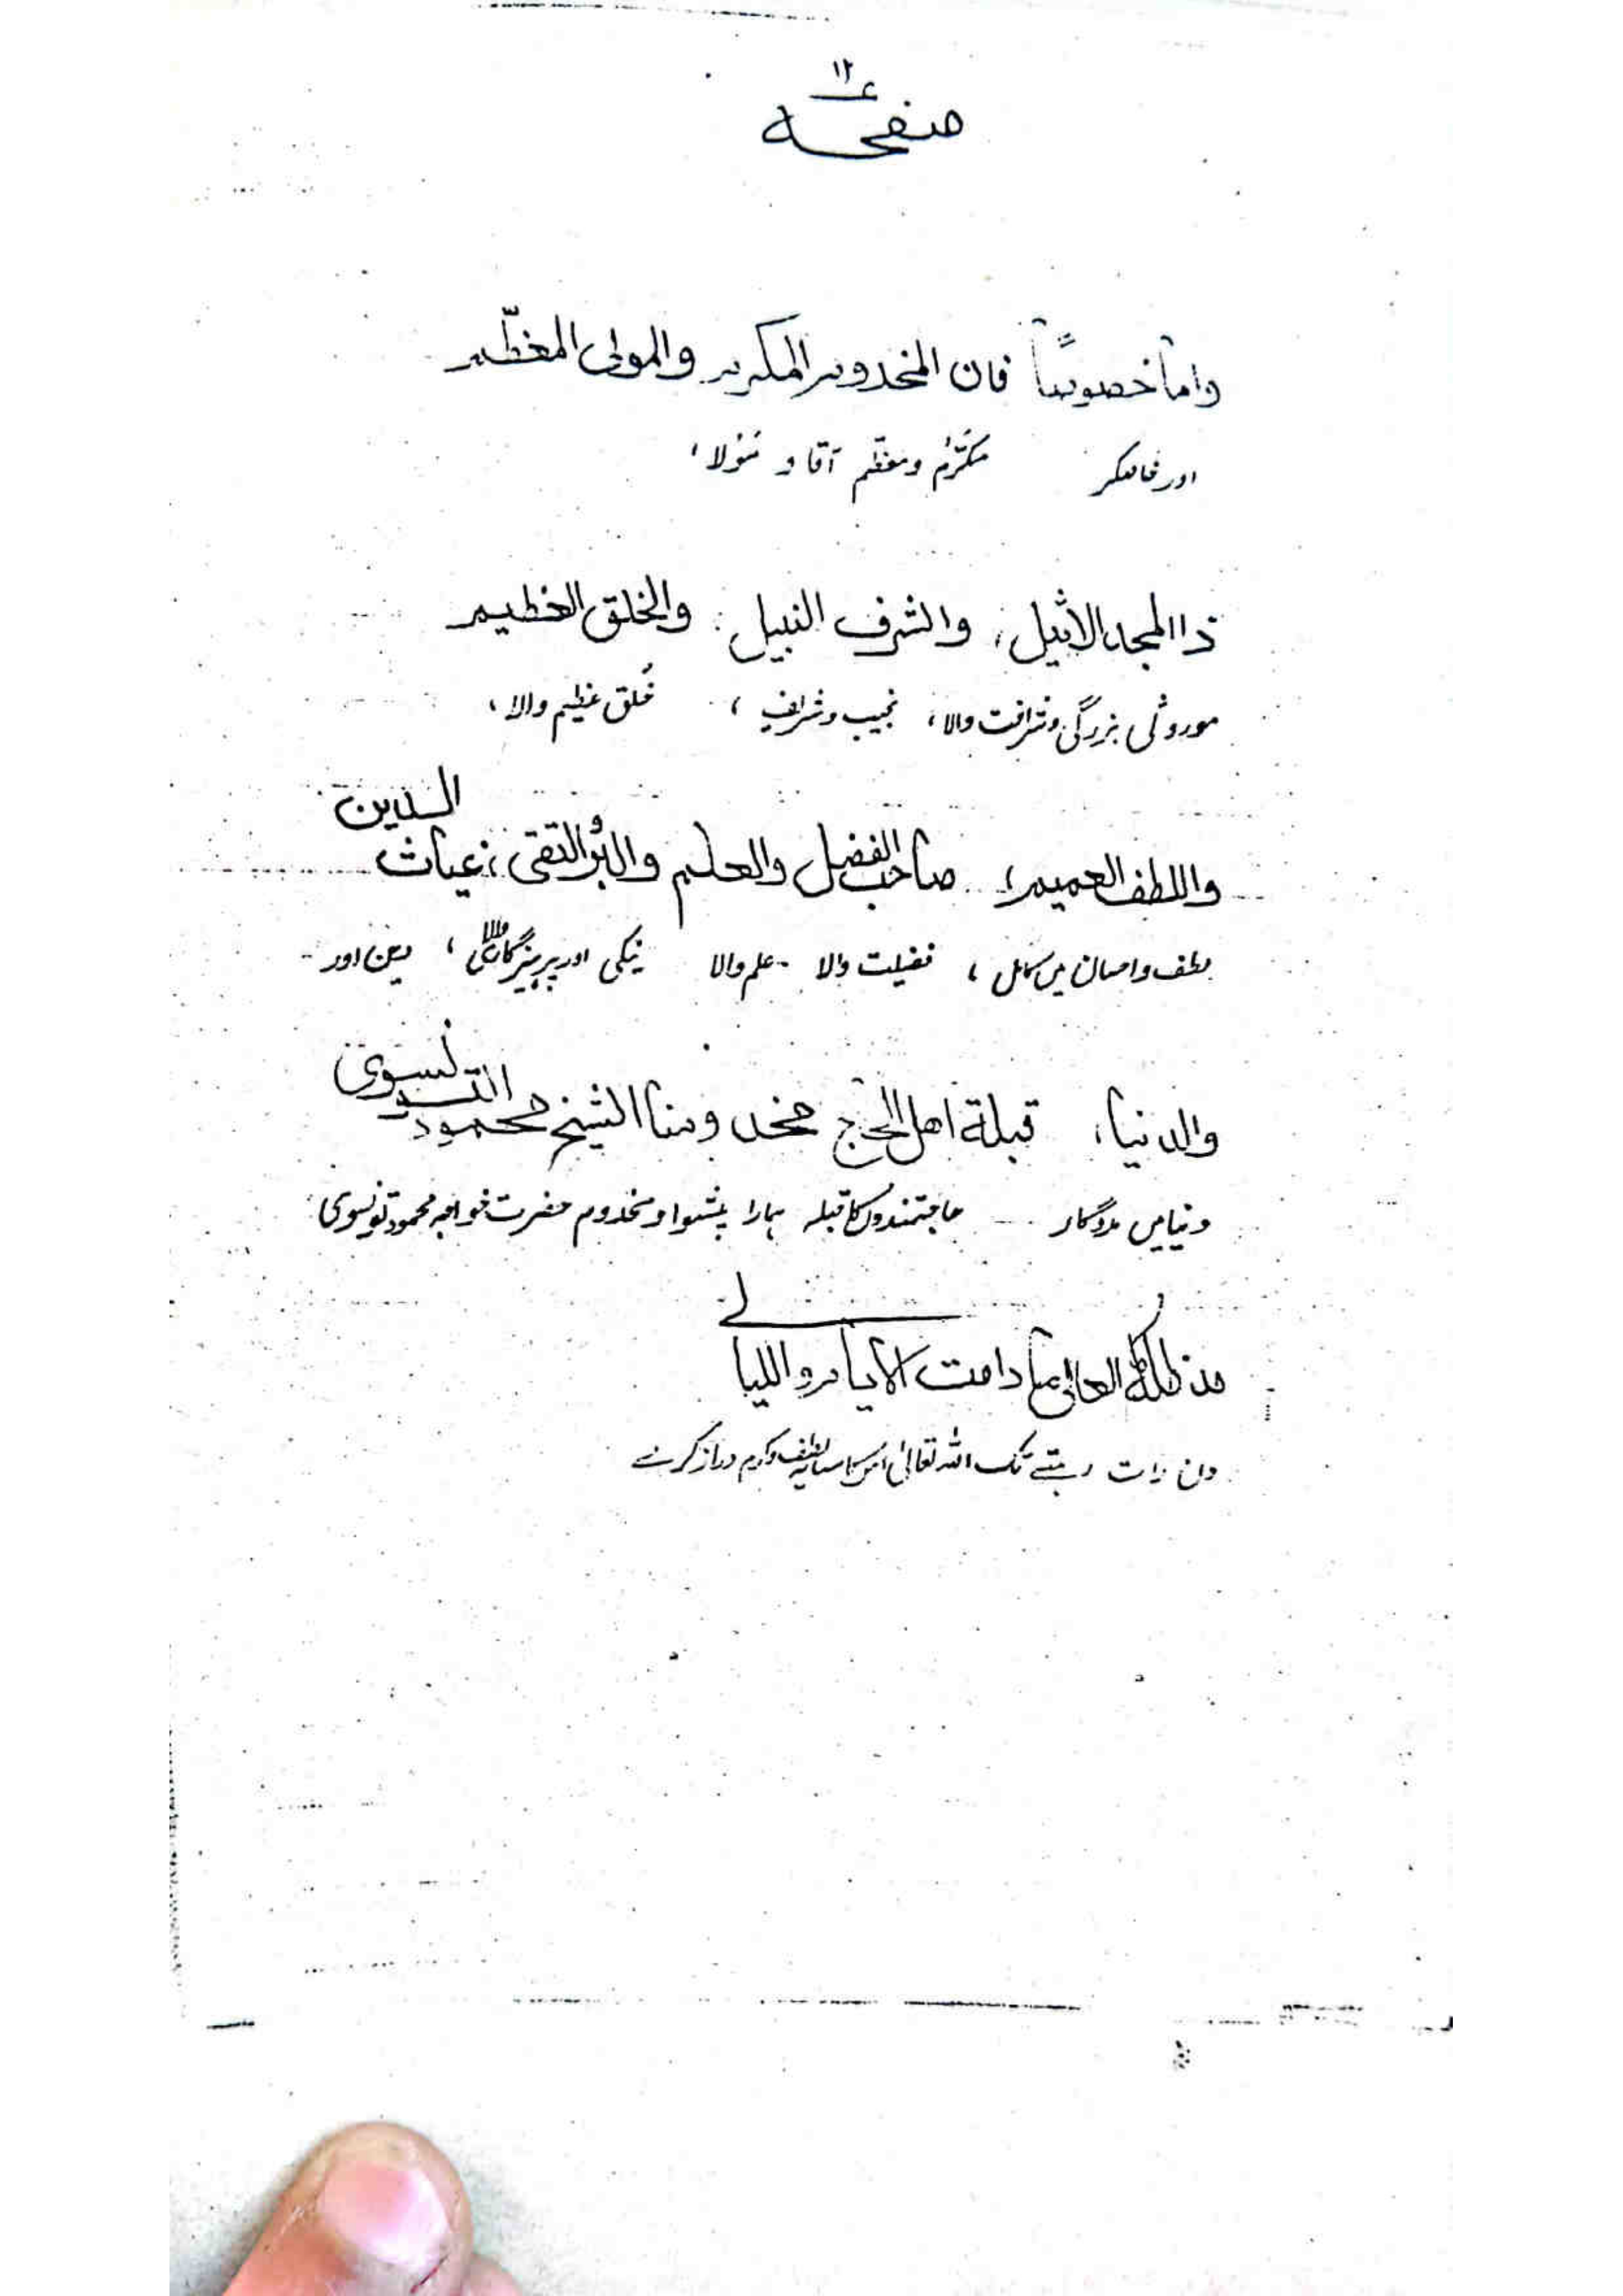 ١٢
صفحه
واما خصوصاً فان المخدوم المكرم والمولى المعظّم
اور خاصکر مکرّم ومعظم آقا و مَولا،
ذا المجد الاثيل، والشرف النبيل، والخلق العظيم
موروثی بزرگی وشرافت والا، نجیب وشریف، خُلق عظیم والا،
واللطف العميم، صاحب الفضل والعلم والبرّ والتقى، غياث الدين
لطف واحسان میں کامل، فضیلت والا۔ علم والا نیکی اور پرہیزگاری والا، دین اور
والدنيا، قبلة اهل الحج مخدومنا الشيخ محمود التونسوى
دنیا میں مددگار حاجتمندوں کا قبلہ ہمارا پیشوا ومخدوم حضرت خواجہ محمود تونسوی
مد ظلله العالى ما دامت الايام والليالى
دن رات رہتے تک اللہ تعالیٰ اس کا سایہ لطف وکرم دراز کرے